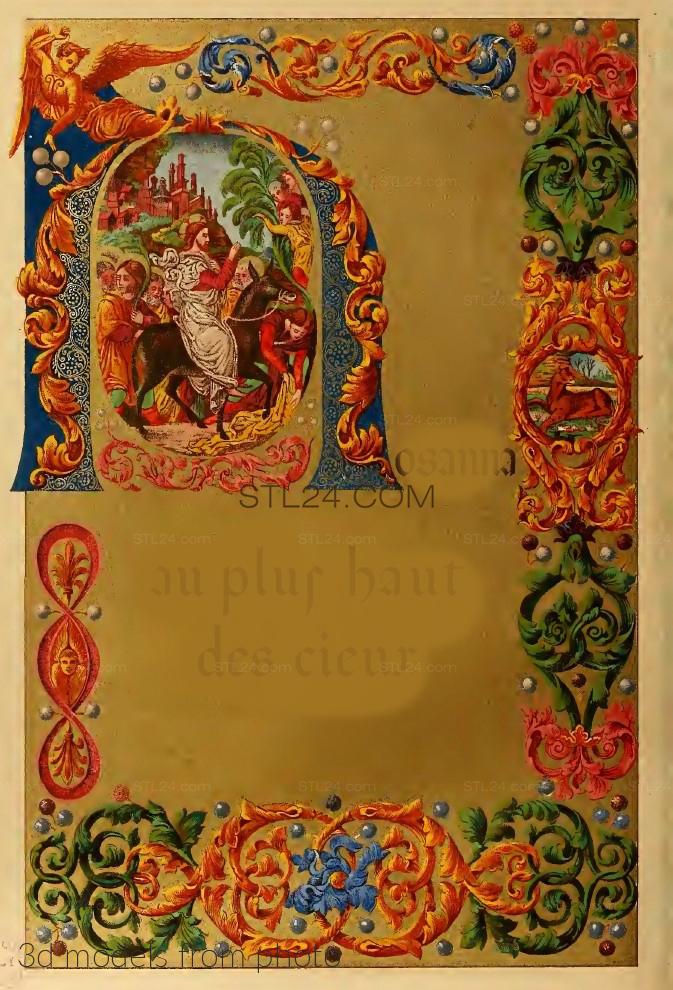 osanna
STL24.com
au pluſ haut
des cieux
3d models from photo